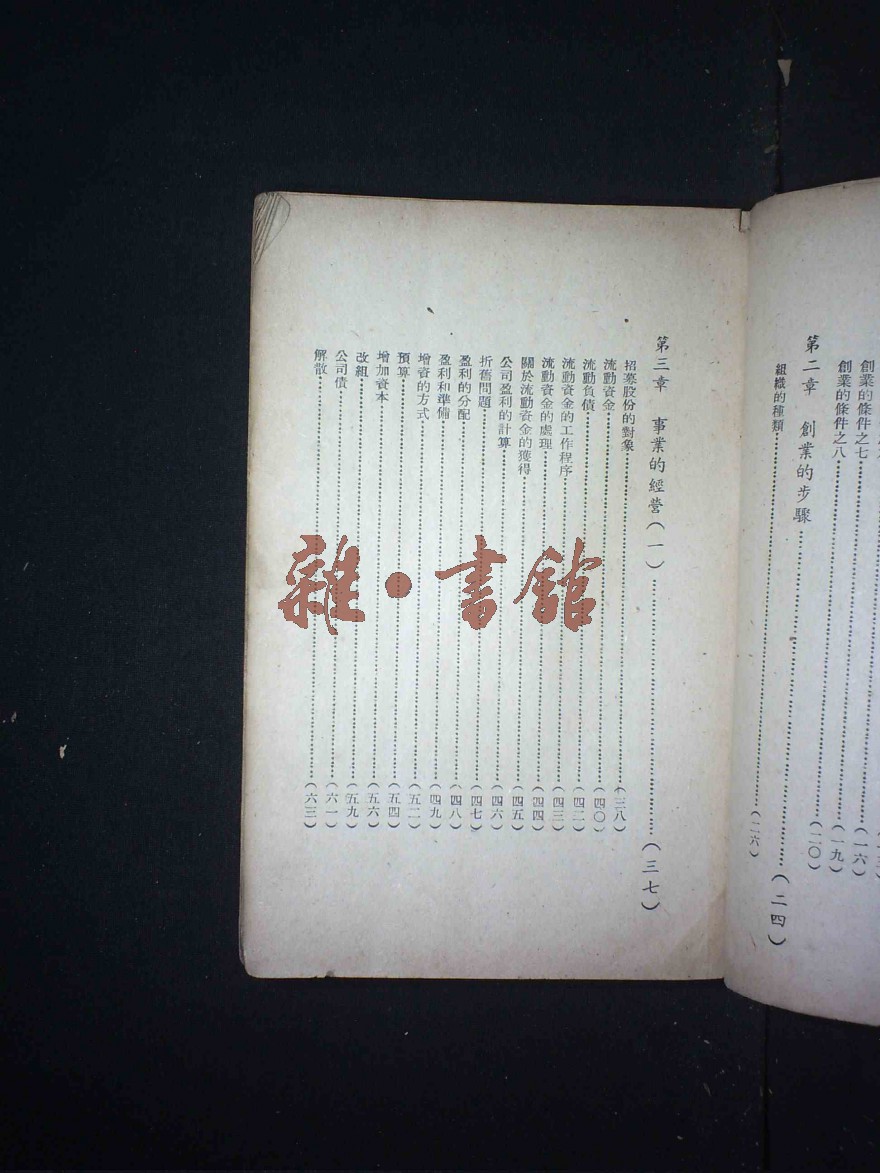 (一六)
創業的條件之七……(一九)
創業的條件之八……(二〇)
第二章 創業的步驟……(二四)
組織的種類……(二六)
第三章 事業的經營(一)……(三七)
招募股份的對象……(三八)
流動資金……(四〇)
流動負債……(四二)
流動資金的工作程序……(四三)
流動資金的處理……(四四)
關於流動資金的獲得……(四五)
公司盈利的計算……(四六)
折舊問題……(四七)
盈利的分配……(四八)
盈利和準備……(四九)
增資的方式……(五二)
預算……(五四)
增加資本……(五六)
改組……(五九)
公司債……(六一)
解散……(六三)
雜·書館